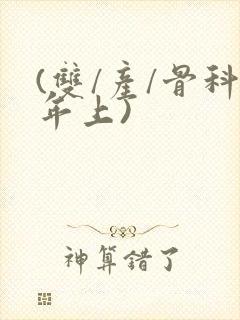 (雙/產/骨科
年上)
神算錯了